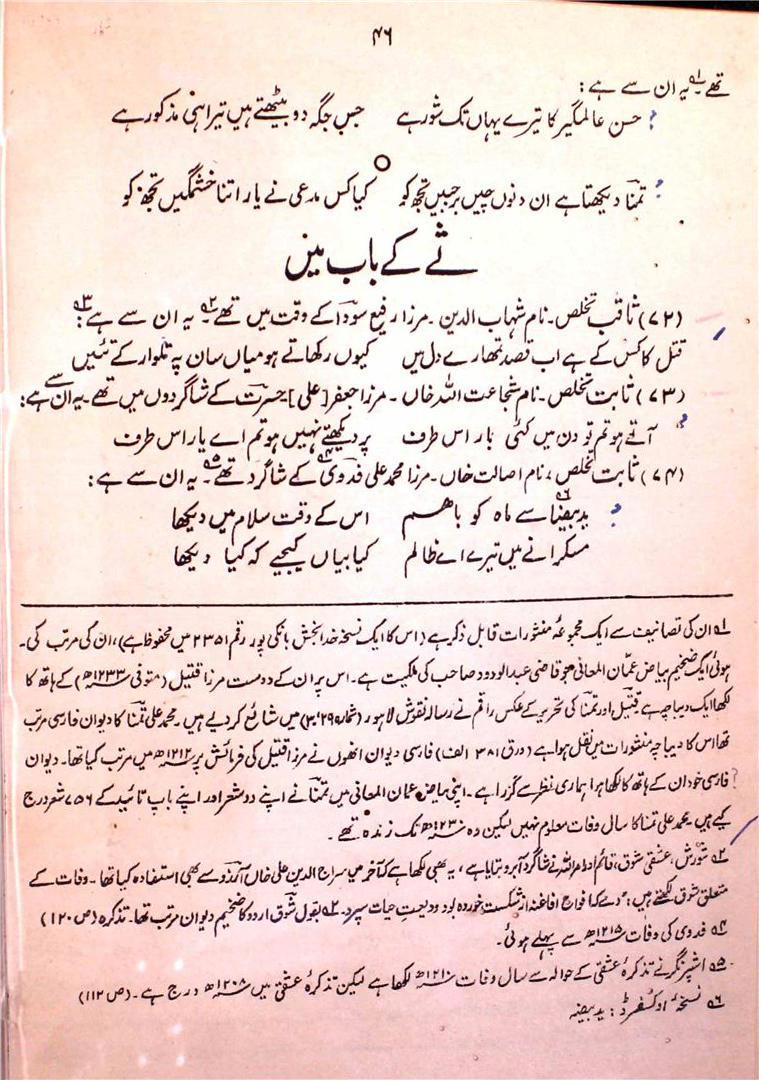 ۴۶
تھے۔ یہ ان سے ہے:
حسن عالمگیر کا تیرے یہاں تک شور ہے جس جگہ دو بیٹھتے ہیں تیرا ہی مذکور ہے
تمنا دیکھتا ہے ان دنوں چیں بر جبیں تجھ کو کیا کس مدعی نے یار اتنا خشمگیں تجھ کو
ثے کے باب میں
(۷۲) ثاقب تخلص۔ نام شہاب الدین۔ مرزا رفیع سودا کے وقت میں تھے۵۲۔ یہ ان سے ہے۵۳:
قتل کا کس کے ہے اب قصد تمھارے دل میں کیوں رکھاتے ہو میاں سان پہ تلوار کے تئیں
(۷۳) ثابت تخلص۔ نام شجاعت اللہ خاں۔ مرزا جعفر [علی] حسرت کے شاگردوں میں تھے۔ یہ ان سے ہے:
آتے ہو تم تو دن میں کئی بار اس طرف پر دیکھتے نہیں ہو تم اے یار اس طرف
(۷۴) ثابت تخلص، نام اصالت خاں۔ مرزا محمد علی فدوی۵۴ کے شاگرد تھے۵۵۔ یہ ان سے ہے:
ید بیضا۵۶ سے ماہ کو باہم اس کے وقت سلام میں دیکھا
مسکرانے میں تیرے اے ظالم کیا بیاں کیجیے کہ کیا دیکھا
۵۱ ان کی تصانیف سے ایک مجموعۂ منشورات قابل ذکر ہے (اس کا ایک نسخہ خدا بخش بانکی پور رقم ۲۳۵۱ میں محفوظ ہے)، ان کی مرتب کی۔
ہوئی ایک ضخیم بیاض عمّان المعانی ہے جو قاضی عبدالودود صاحب کی ملکیت ہے۔ اس پر ان کے دوست مرزا قتیل (متوفی ۱۲۳۳ھ) کے ہاتھ کا
لکھا ایک دیباچہ ہے۔ قتیل اور تمنا کی تحریر کے عکس راقم نے رسالہ نقوش لاہور (شمارہ ۲۹، ۳۰) میں شائع کر دیے ہیں۔ محمد علی تمنا کا دیوان فارسی مرتب
تھا اس کا دیباچہ منشورات میں نقل ہوا ہے (ورق ۳۸۱ الف) فارسی دیوان انھوں نے مرزا قتیل کی فرمائش پر ۱۲۱۲ھ میں مرتب کیا تھا۔ دیوان
فارسی خود ان کے ہاتھ کا لکھا ہوا ہماری نظر سے گزرا ہے۔ اپنی بیاض عمان المعانی میں تمنا نے اپنے دو شعر اور اپنے باپ تائید کے ۷۵۶ شعر درج
کیے ہیں۔ محمد علی تمنا کا سال وفات معلوم نہیں لیکن وہ ۱۲۳۰ھ تک زندہ تھے۔
۵۲ شورش، عشقی، شوق، قائم اور امر اللہ نے شاگرد آبرو بتایا ہے، یہ بھی لکھا ہے کہ آخر میں سراج الدین علی خاں آرزو سے بھی استفادہ کیا تھا۔ وفات کے
متعلق شوق لکھتے ہیں: "دے کہ افواج افاغنہ از شکست خوردہ بود ودیعت حیات سپرد۔ ۵۳ بقول شوق اردو کا ضخیم دیوان مرتب تھا۔ تذکرہ (ص ۱۲۰)
۵۴ فدوی کی وفات ۱۲۱۵ھ سے پہلے ہوئی۔
۵۵ اشپرنگر نے تذکرۂ عشقی کے حوالہ سے سال وفات ۱۲۱۰ھ لکھا ہے لیکن تذکرۂ عشقی میں ۱۲۰۸ھ درج ہے۔ (ص ۱۱۲)
۵۶ نسخۂ اوکسفرڈ: ید بیضہ